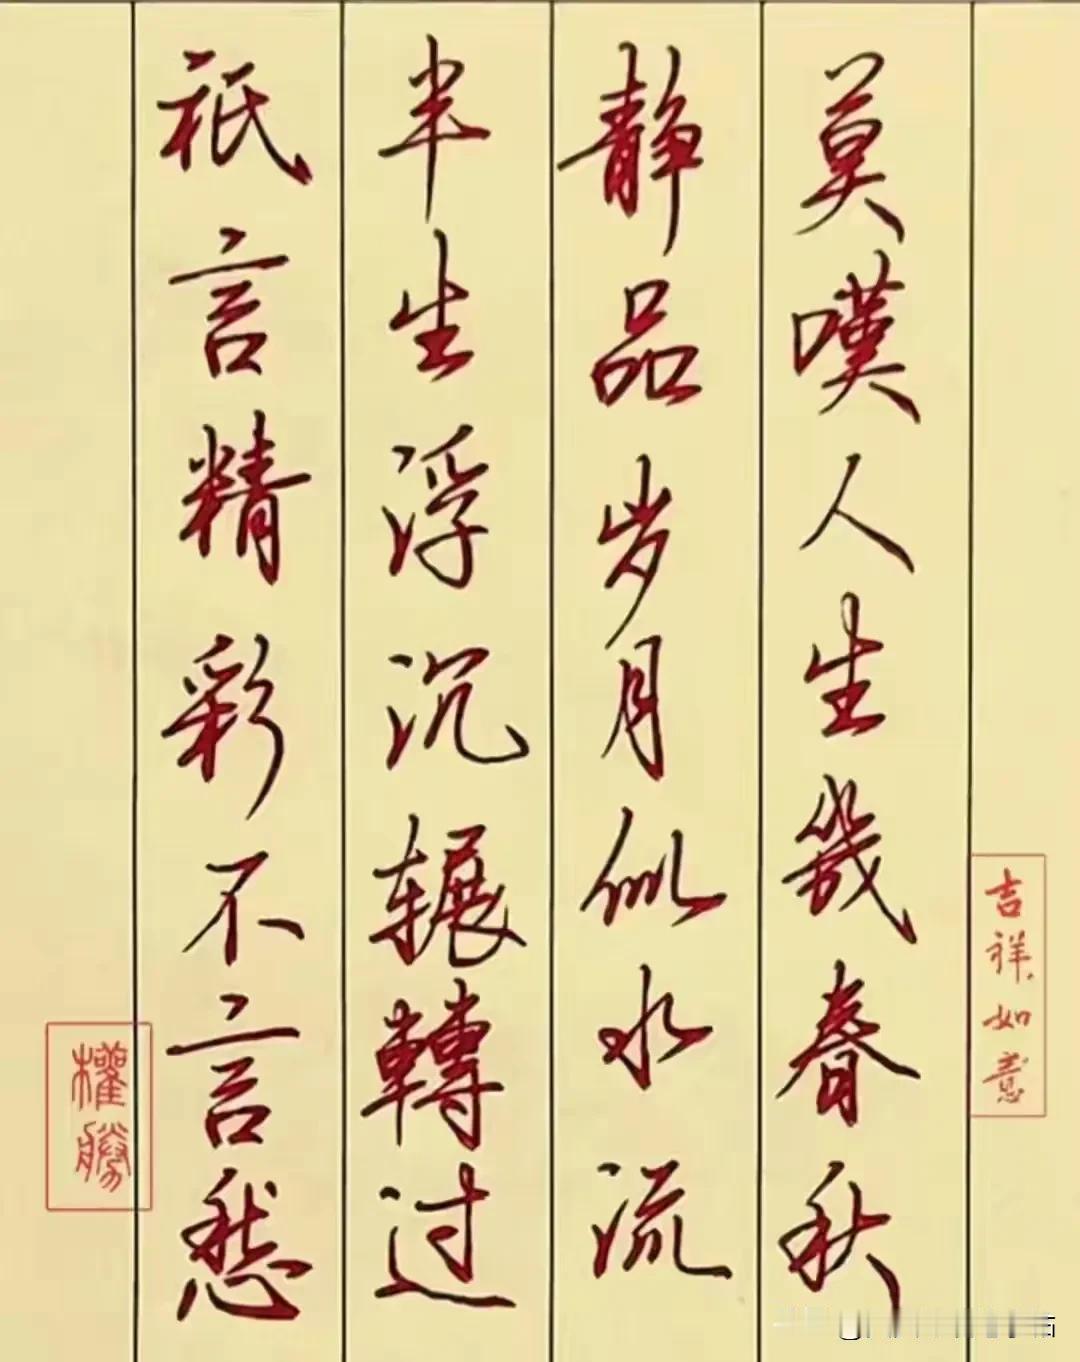 莫嘆人生幾春秋
静品岁月似水流
半生浮沉辗轉过
祇言精彩不言愁
吉祥如意
權勝